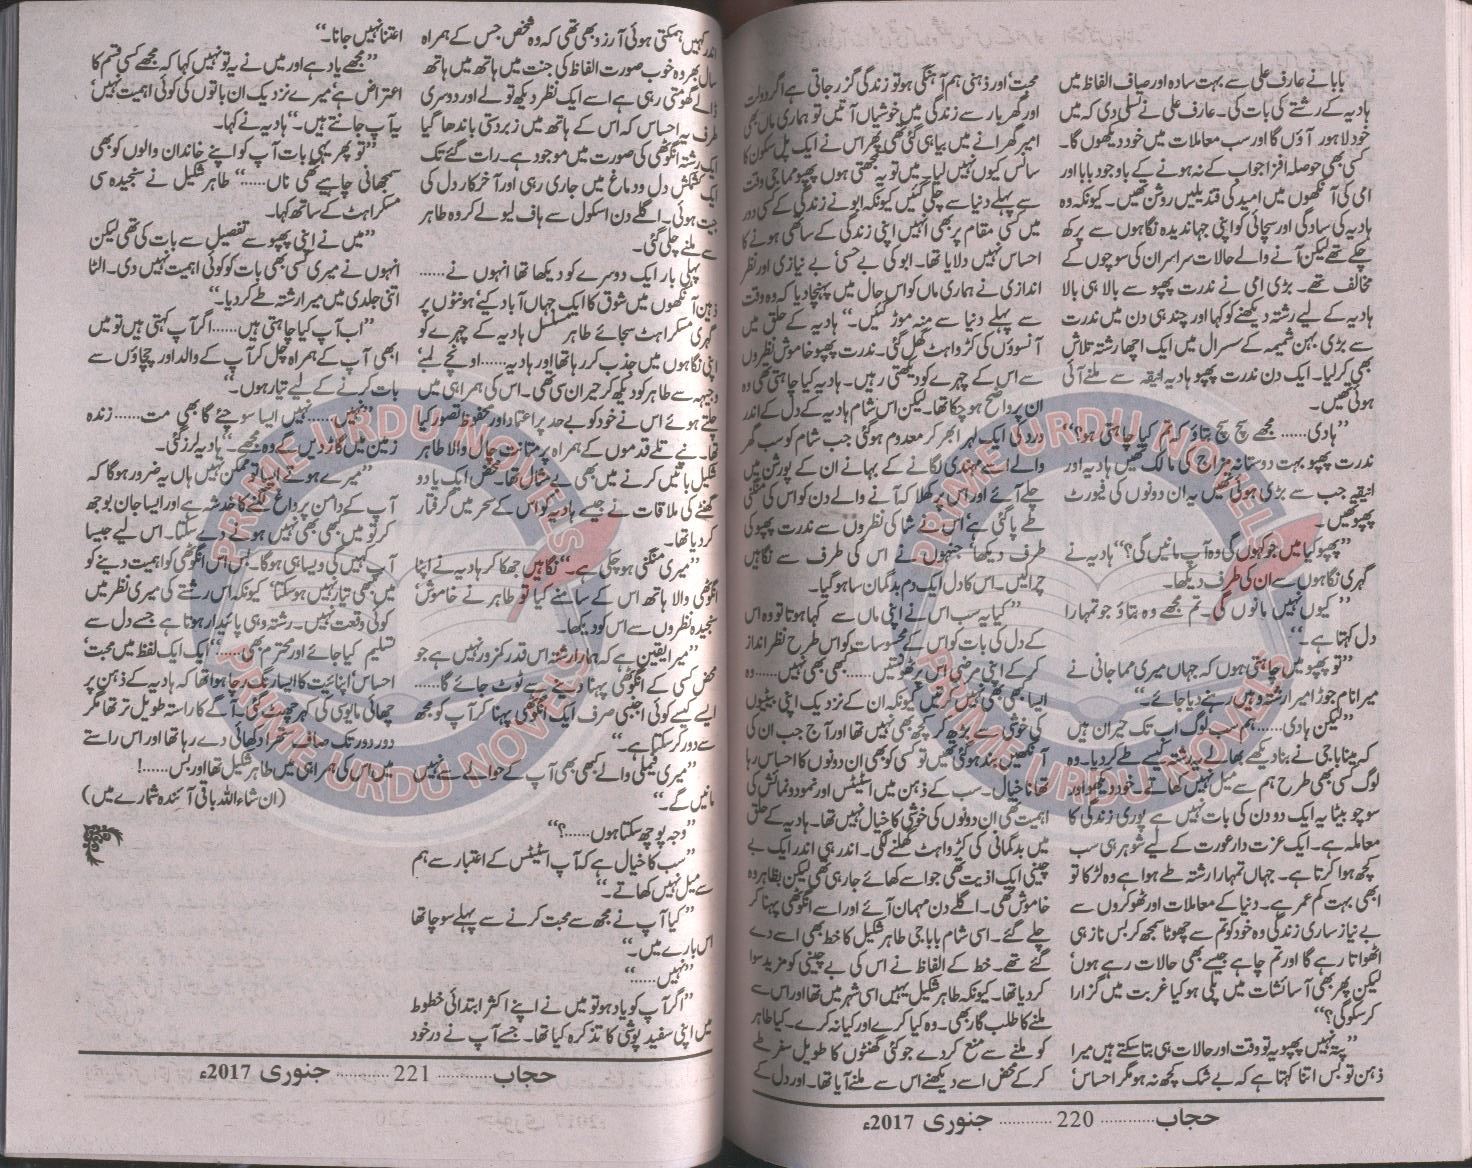 بابا نے عارف علی سے بہت سادہ اور صاف الفاظ میں
ہادیہ کے رشتے کی بات کی۔ عارف علی نے تسلی دی کہ میں
خود لاہور آؤں گا اور سب معاملات میں خود دیکھوں گا۔
کسی بھی حوصلہ افزا جواب کے نہ ہونے کے باوجود بابا اور
امی کی آنکھوں میں امید کی قندیلیں روشن تھیں۔ کیونکہ وہ
ہادیہ کی سادگی اور سچائی کو اپنی جہاندیدہ نگاہوں سے پرکھ
چکے تھے لیکن آنے والے حالات سراسر ان کی سوچوں کے
مخالف تھے۔ بڑی امی نے ندرت پھپو سے بالا ہی بالا
ہادیہ کے لیے رشتہ دیکھنے کو کہا اور چند ہی دن میں ندرت
سے بڑی بہن شمیمہ کے سسرال میں ایک اچھا رشتہ تلاش
بھی کرلیا۔ ایک دن ندرت پھپو ہادیہ انیقہ سے ملنے آئی
ہوئی تھیں۔
”ہادی...... مجھے سچ سچ بتاؤ کہ تم کیا چاہتی ہو؟“
ندرت پھپو بہت دوستانہ مزاج کی مالک تھیں ہادیہ اور
انیقہ جب سے بڑی ہوئی تھیں یہ ان دونوں کی فیورٹ
پھپو تھیں۔
”پھپو کیا میں جو کہوں گی وہ آپ مانیں گی؟“ ہادیہ نے
گہری نگاہوں سے ان کی طرف دیکھا۔
”کیوں نہیں مانوں گی۔ تم مجھے وہ بتاؤ جو تمہارا
دل کہتا ہے۔“
”تو پھپو میں چاہتی ہوں کہ جہاں میری مما جانی نے
میرا نام جوڑا میرا رشتہ وہیں رہنے دیا جائے۔“
”لیکن ہادی...... ہم سب لوگ اب تک حیران ہیں
کہ مینا باجی نے بنا دیکھے بھالے یہ رشتہ کیسے طے کردیا۔ وہ
لوگ کسی بھی طرح ہم سے میل نہیں کھاتے۔ خود دیکھو اور
سوچو بیٹا یہ ایک دو دن کی بات نہیں ہے پوری زندگی کا
معاملہ ہے۔ ایک عزت دار عورت کے لیے شوہر ہی سب
کچھ ہوا کرتا ہے۔ جہاں تمہارا رشتہ طے ہوا ہے وہ لڑکا تو
ابھی بہت کم عمر ہے۔ دنیا کے معاملات اور ٹھوکروں سے
بے نیاز ساری زندگی وہ خود کو تم سے چھوٹا سمجھ کر بس ناز ہی
اٹھواتا رہے گا اور تم چاہے جیسے بھی حالات رہے ہوں‘
لیکن پھر بھی آسائشات میں پلی ہو کیا غربت میں گزارا
کرسکو گی؟“
”پتہ نہیں پھپو یہ تو وقت اور حالات ہی بتا سکتے ہیں میرا
ذہن تو بس اتنا کہتا ہے کہ بے شک کچھ نہ ہو مگر احساس‘
محبت‘ اور ذہنی ہم آہنگی ہو تو زندگی گزر جاتی ہے اگر دولت
اور گھر بار سے زندگی میں خوشیاں آتیں تو ہماری ماں بھی
امیر گھرانے میں بیاہی گئی تھی پھر اس نے ایک پل سکون کا
سانس کیوں نہیں لیا۔ میں تو یہ سمجھتی ہوں پھپو مما جی وقت
سے پہلے دنیا سے چلی گئیں کیونکہ ابو نے زندگی کے کسی دور
میں کسی مقام پر بھی انہیں اپنی زندگی کے ساتھی ہونے کا
احساس نہیں دلایا تھا۔ ابو کی بے حسی‘ بے نیازی اور نظر
اندازی نے ہماری ماں کو اس حال میں پہنچا دیا کہ وہ وقت
سے پہلے دنیا سے منہ موڑ گئیں۔“ ہادیہ کے حلق میں
آنسوؤں کی کڑواہٹ گھل گئی۔ ندرت پھپو خاموش نظروں
سے اس کے چہرے کو دیکھتی رہیں۔ ہادیہ کیا چاہتی تھی وہ
ان پر واضح ہوچکا تھا۔ لیکن اس شام ہادیہ کے دل کے اندر
درد کی ایک لہر ابھر کر معدوم ہوگئی جب شام کو سب گھر
والے اسے مہندی لگانے کے بہانے ان کے پورشن میں
چلے آئے اور اس پر کھلا کہ آنے والے دن کو اس کی منگنی
طے پا گئی ہے‘ اس نے شاکی نظروں سے ندرت پھپو کی
طرف دیکھا‘ جنہوں نے اس کی طرف سے نگاہیں
چرالیں۔ اس کا دل ایک دم بدگمان سا ہوگیا۔
”کیا یہ سب اس نے اپنی ماں سے کہا ہوتا تو وہ اس
کے دل کی بات کو اس کے محسوسات کو اس طرح نظر انداز
کرکے اپنی مرضی اس پر تھوپتیں...... کبھی بھی نہیں...... وہ
ایسا کبھی بھی نہیں کرتیں کیونکہ ان کے نزدیک اپنی بیٹیوں
کی خوشی سے بڑھ کر کچھ بھی نہیں تھا اور آج جب ان کی
آنکھیں بند ہوگئی تھیں تو کسی کو بھی ان دونوں کا احساس رہا
تھا نا خیال۔ سب کے ذہن میں اسٹیٹس اور نمود و نمائش کی
اہمیت تھی ان دونوں کی خوشی کا خیال نہیں تھا۔ ہادیہ کے حلق
میں بدگمانی کی کڑواہٹ گھلنے لگی۔ اندر ہی اندر ایک بے
چینی ایک اذیت تھی جو اسے کھائے جارہی تھی لیکن بظاہر وہ
خاموش تھی۔ اگلے دن مہمان آئے اور اسے انگوٹھی پہنا کر
چلے گئے۔ اسی شام بابا جی طاہر شکیل کا خط بھی اسے دے
گئے تھے۔ خط کے الفاظ نے اس کی بے چینی کو مزید سوا
کردیا تھا۔ کیونکہ طاہر شکیل یہیں اسی شہر میں تھا اور اس سے
ملنے کا طلب گار بھی۔ وہ کیا کرے اور کیا نہ کرے۔ کیا طاہر
کو ملنے سے منع کردے جو کئی گھنٹوں کا طویل سفر طے
کرکے محض اسے دیکھنے اس سے ملنے آیا تھا۔ اور دل کے
حجاب............ 220 ............ جنوری 2017ء
اندر کہیں ہمکتی ہوئی آرزو بھی تھی کہ وہ شخص جس کے ہمراہ
سال بھر وہ خوب صورت الفاظ کی جنت میں ہاتھ میں ہاتھ
ڈالے گھومتی رہی ہے اسے ایک نظر دیکھ تو لے اور دوسری
طرف یہ احساس کہ اس کے ہاتھ میں زبردستی باندھا گیا
ایک رشتہ انگوٹھی کی صورت میں موجود ہے۔ رات گئے تک
ایک کشمکش دل و دماغ میں جاری رہی اور آخر کار دل کی
جیت ہوئی۔ اگلے دن اسکول سے ہاف لیو لے کر وہ طاہر
سے ملنے چلی گئی۔
پہلی بار ایک دوسرے کو دیکھا تھا انہوں نے......
ذہین آنکھوں میں شوق کا ایک جہاں آباد کیے‘ ہونٹوں پر
گہری مسکراہٹ سجائے طاہر مسلسل ہادیہ کے چہرے کو
اپنی نگاہوں میں جذب کررہا تھا اور ہادیہ...... اونچے لمبے‘
وجیہہ سے طاہر کو دیکھ کر حیران سی تھی۔ اس کی ہمراہی میں
چلتے ہوئے اس نے خود کو بے حد پر اعتماد اور محفوظ تصور کیا
تھا۔ نپے تلے قدموں کے ہمراہ پر متانت چال والا طاہر
شکیل باتیں کرنے میں بھی بے مثال تھا۔ محض ایک یا دو
گھنٹے کی ملاقات نے جیسے ہادیہ کو اس کے سحر میں گرفتار
کردیا تھا۔
”میری منگنی ہوچکی ہے۔“ نگاہیں جھکا کر ہادیہ نے اپنا
انگوٹھی والا ہاتھ اس کے سامنے کیا تو طاہر نے خاموش‘
سنجیدہ نظروں سے اس کو دیکھا۔
”میرا یقین ہے کہ ہمارا رشتہ اس قدر کمزور نہیں ہے جو
محض کسی کے انگوٹھی پہنا دینے سے ٹوٹ جائے گا......
ایسے کیسے کوئی اجنبی صرف ایک انگوٹھی پہنا کر آپ کو مجھ
سے دور کرسکتا ہے۔“
”میری فیملی والے کبھی بھی آپ کے حوالے سے نہیں
مانیں گے۔“
”وجہ پوچھ سکتا ہوں......؟“
”سب کا خیال ہے کہ آپ اسٹیٹس کے اعتبار سے ہم
سے میل نہیں کھاتے۔“
”کیا آپ نے مجھ سے محبت کرنے سے پہلے سوچا تھا
اس بارے میں۔“
”نہیں......“
”اگر آپ کو یاد ہو تو میں نے اپنے اکثر ابتدائی خطوط
میں اپنی سفید پوشی کا تذکرہ کیا تھا۔ جسے آپ نے درخود
اعتنا نہیں جانا۔“
”مجھے یاد ہے اور میں نے یہ تو نہیں کہا کہ مجھے کسی قسم کا
اعتراض ہے‘ میرے نزدیک ان باتوں کی کوئی اہمیت نہیں‘
یہ آپ جانتے ہیں۔“ ہادیہ نے کہا۔
”تو پھر یہی بات آپ کو اپنے خاندان والوں کو بھی
سمجھانی چاہیے تھی ناں......“ طاہر شکیل نے سنجیدہ سی
مسکراہٹ کے ساتھ کہا۔
”میں نے اپنی پھپو سے تفصیل سے بات کی تھی لیکن
انہوں نے میری کسی بھی بات کو کوئی اہمیت نہیں دی۔ الٹا
اتنی جلدی میں میرا رشتہ طے کردیا۔“
”اب آپ کیا چاہتی ہیں...... اگر آپ کہتی ہیں تو میں
ابھی آپ کے ہمراہ چل کر آپ کے والد اور چچاؤں سے
بات کرنے کے لیے تیار ہوں۔“
”نہیں...... نہیں ایسا سوچئے گا بھی مت...... زندہ
زمین میں گاڑ دیں گے وہ مجھے۔“ ہادیہ لرز گئی۔
”میرے ہوتے ایسا تو ممکن نہیں ہاں یہ ضرور ہوگا کہ
آپ کے دامن پر داغ لگنے کا خدشہ ہے اور ایسا جان بوجھ
کر تو میں کبھی بھی نہیں ہونے دے سکتا۔ اس لیے جیسا
آپ کہیں گی ویسا ہی ہوگا۔ بس اس انگوٹھی کو اہمیت دینے کو
میں کبھی تیار نہیں ہوسکتا‘ کیونکہ اس رشتے کی میری نظر میں
کوئی وقعت نہیں۔ رشتہ وہی پائیدار ہوتا ہے جسے دل سے
تسلیم کیا جائے اور محترم بھی......“ ایک ایک لفظ میں محبت‘
احساس‘ اپنائیت کا ایسا رنگ رچا ہوا تھا کہ ہادیہ کے ذہن پر
چھائی مایوسی کی کہر چھٹ گئی۔ آگے کا راستہ طویل تر تھا مگر
دور دور تک صاف ستھرا دکھائی دے رہا تھا اور اس راستے
میں اس کی ہمراہی میں طاہر شکیل تھا اور بس......!
(ان شاء اللہ باقی آئندہ شمارے میں)
حجاب............ 221 ............ جنوری 2017ء
PRIME URDU NOVELS
PRIME URDU NOVELS
PRIME URDU NOVELS
PRIME URDU NOVELS